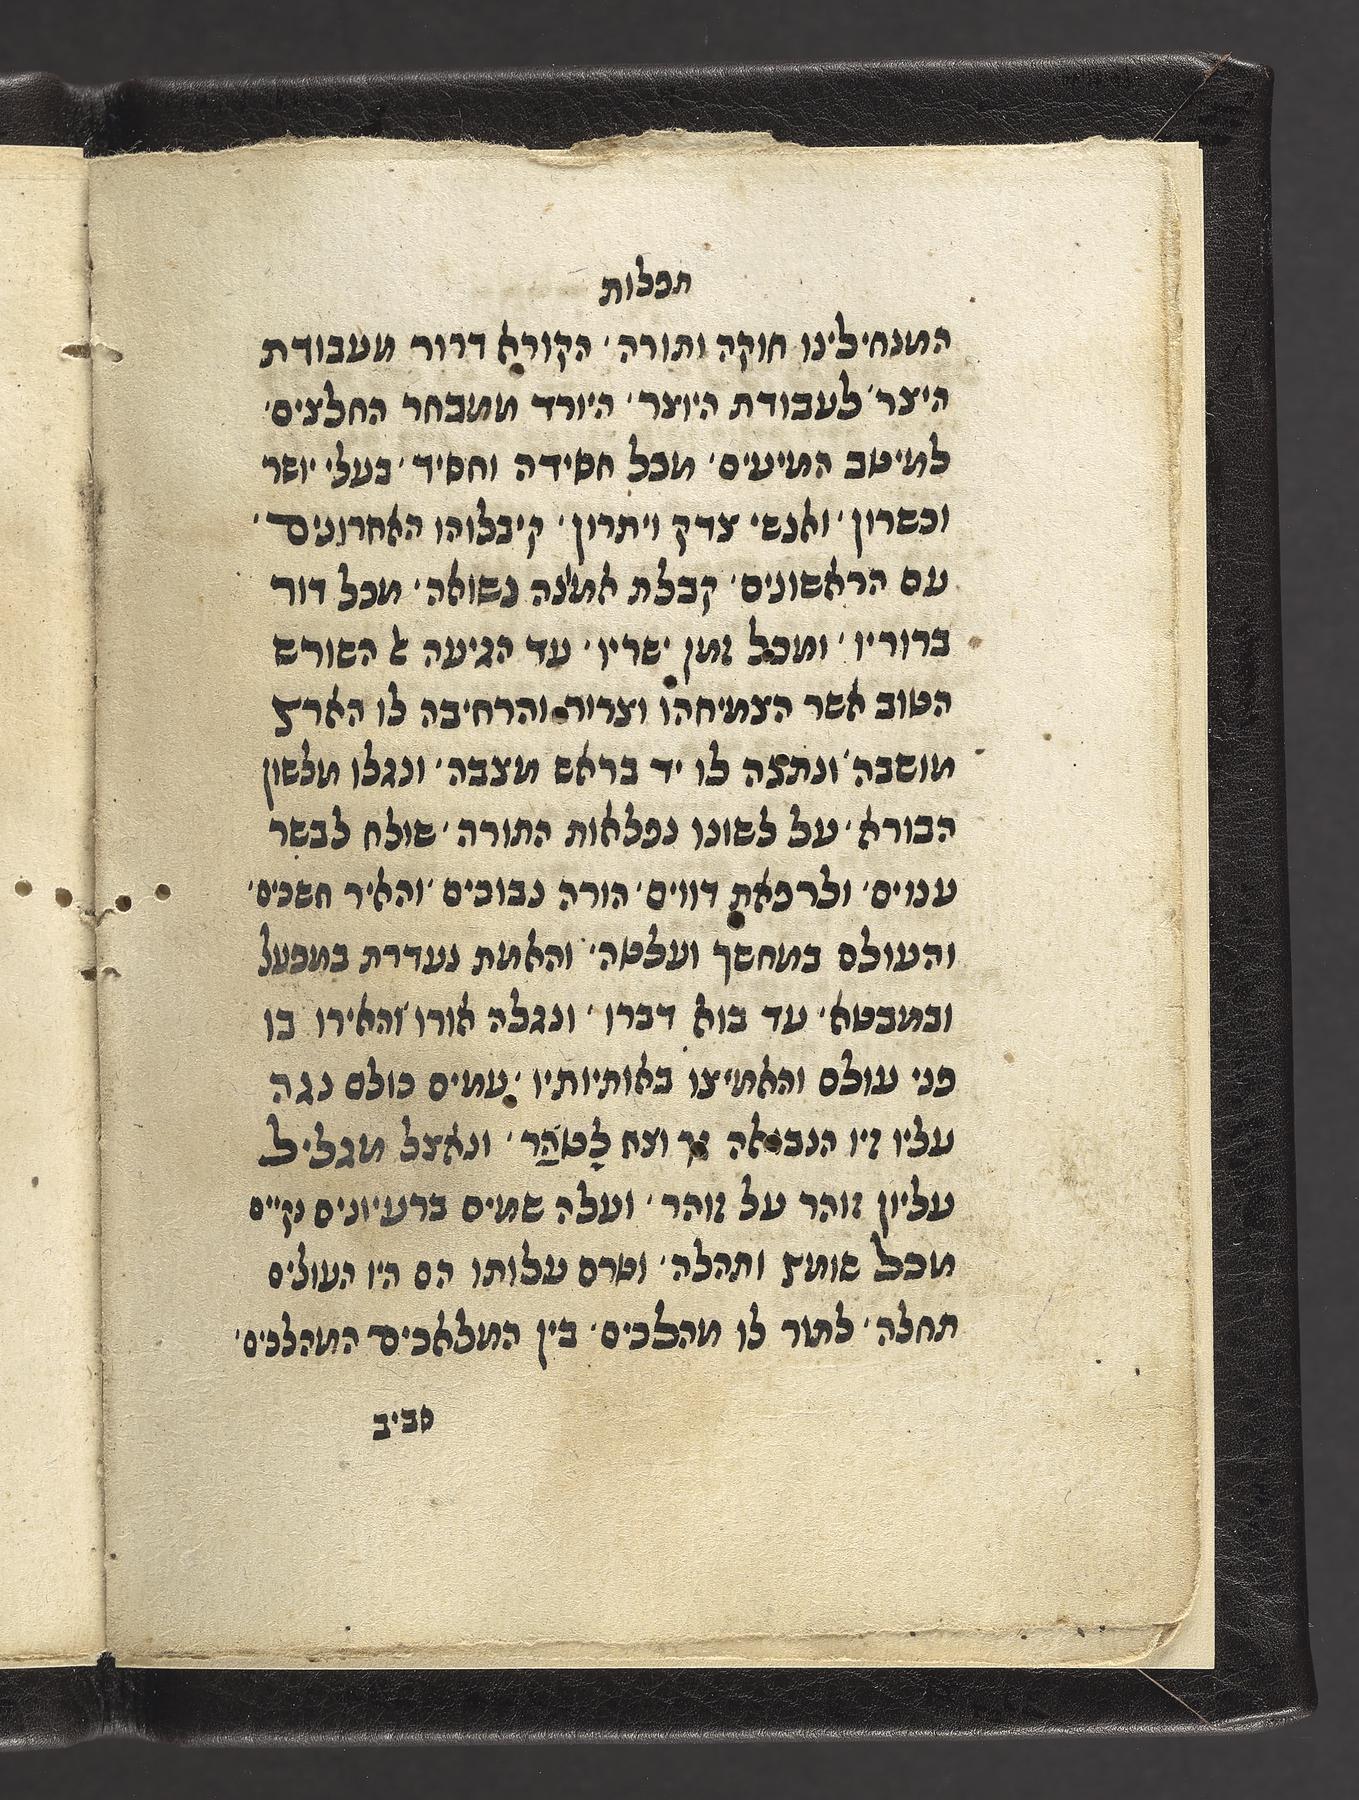 תפלות
המנחילינו חוקה ותורה׳ הקורא דרור מעבודת
היצר׳ לעבודת היוצר׳ היורד ממבחר החלצים׳
למיטב המיעים׳ מכל חסידה וחסיד׳ בעלי יושר
וכשרון׳ ואנשי צדק ויתרון׳ קיבלוהו האחרונים׳
עם הראשונים׳ קבלת אמנה נשואה׳ מכל דור
ברוריו׳ ומכל זמן ישריו׳ עד הגיעה השורש
הטוב אשר הצמיחהו וצרור והרחיבה לו הארץ
מושבה׳ ונתצה לו יד בראש מצבה׳ ונגלו מלשון
הבורא׳ על לשונו נפלאות התורה׳ שולח לבשר
ענוים׳ ולרפאת דווים׳ הורה נבוכים׳ והאיר חשכים׳
והעולם במחשך ועלטה׳ והאמת נעדרת במפעל
ובמבטא׳ עד בוא דברו׳ ונגלה אורו והאירו בו
פני עולם והאמיצו באותיותיו׳ עמים כולם נגה
עליו זיו הנבואה זך וצח לטהר׳ ונאצל מגליל
עליון זוהר על זוהר׳ ועלה שמים ברעיונים נקיים
מכל שומץ ותהלה׳ וטרם עלותו הם היו העולים
תחלה׳ לתור לו מהלכים׳ בין המלאכים המהלכים׳
סביב